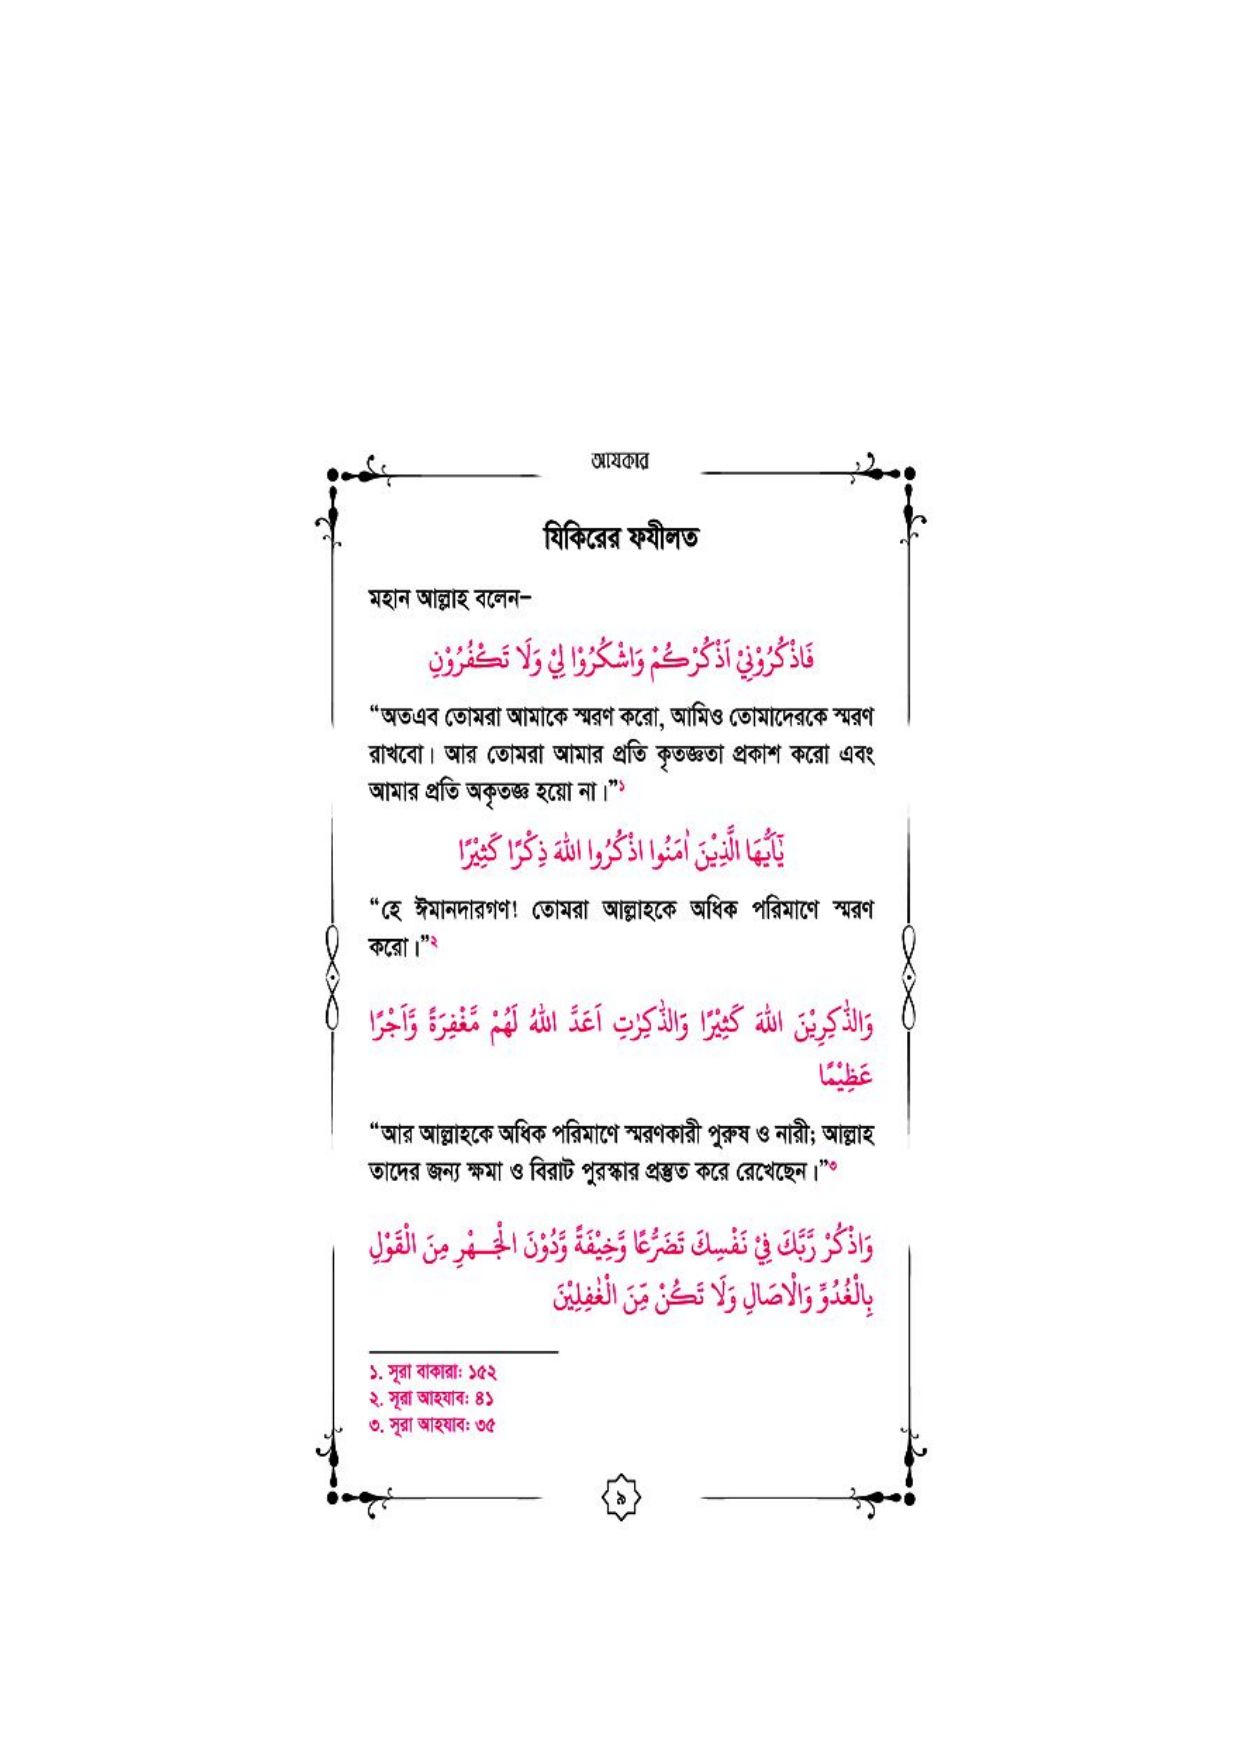 আযকার
যিকিরের ফযীলত
মহান আল্লাহ বলেন–
فَاذْكُرُوْنِيْ اَذْكُرْكُمْ وَاشْكُرُوْا لِيْ وَلَا تَكْفُرُوْنِ
“অতএব তোমরা আমাকে স্মরণ করো, আমিও তোমাদেরকে স্মরণ
রাখবো। আর তোমরা আমার প্রতি কৃতজ্ঞতা প্রকাশ করো এবং
আমার প্রতি অকৃতজ্ঞ হয়ো না।”১
يٰٓاَيُّهَا الَّذِيْنَ اٰمَنُوا اذْكُرُوا اللهَ ذِكْرًا كَثِيْرًا
“হে ঈমানদারগণ! তোমরা আল্লাহকে অধিক পরিমাণে স্মরণ
করো।”২
وَالذّٰكِرِيْنَ اللهَ كَثِيْرًا وَالذّٰكِرٰتِ اَعَدَّ اللهُ لَهُمْ مَّغْفِرَةً وَّاَجْرًا
عَظِيْمًا
“আর আল্লাহকে অধিক পরিমাণে স্মরণকারী পুরুষ ও নারী; আল্লাহ
তাদের জন্য ক্ষমা ও বিরাট পুরস্কার প্রস্তুত করে রেখেছেন।”৩
وَاذْكُرْ رَّبَّكَ فِيْ نَفْسِكَ تَضَرُّعًا وَّخِيْفَةً وَّدُوْنَ الْجَـهْرِ مِنَ الْقَوْلِ
بِالْغُدُوِّ وَالْاصَالِ وَلَا تَكُنْ مِّنَ الْغٰفِلِيْنَ
১. সূরা বাকারা: ১৫২
২. সূরা আহযাব: ৪১
৩. সূরা আহযাব: ৩৫
৯